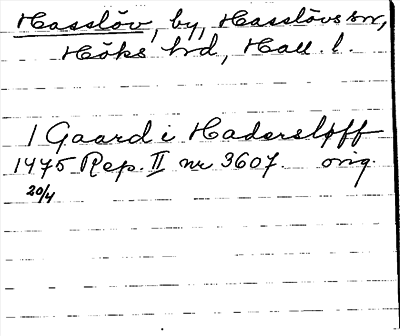 Hasslöv, by, Hasslövs sn,
Höks hrd, Hall. l.
1 Gaard i Hadersløff
1475 Rep. II nr 3607. orig.
20/4